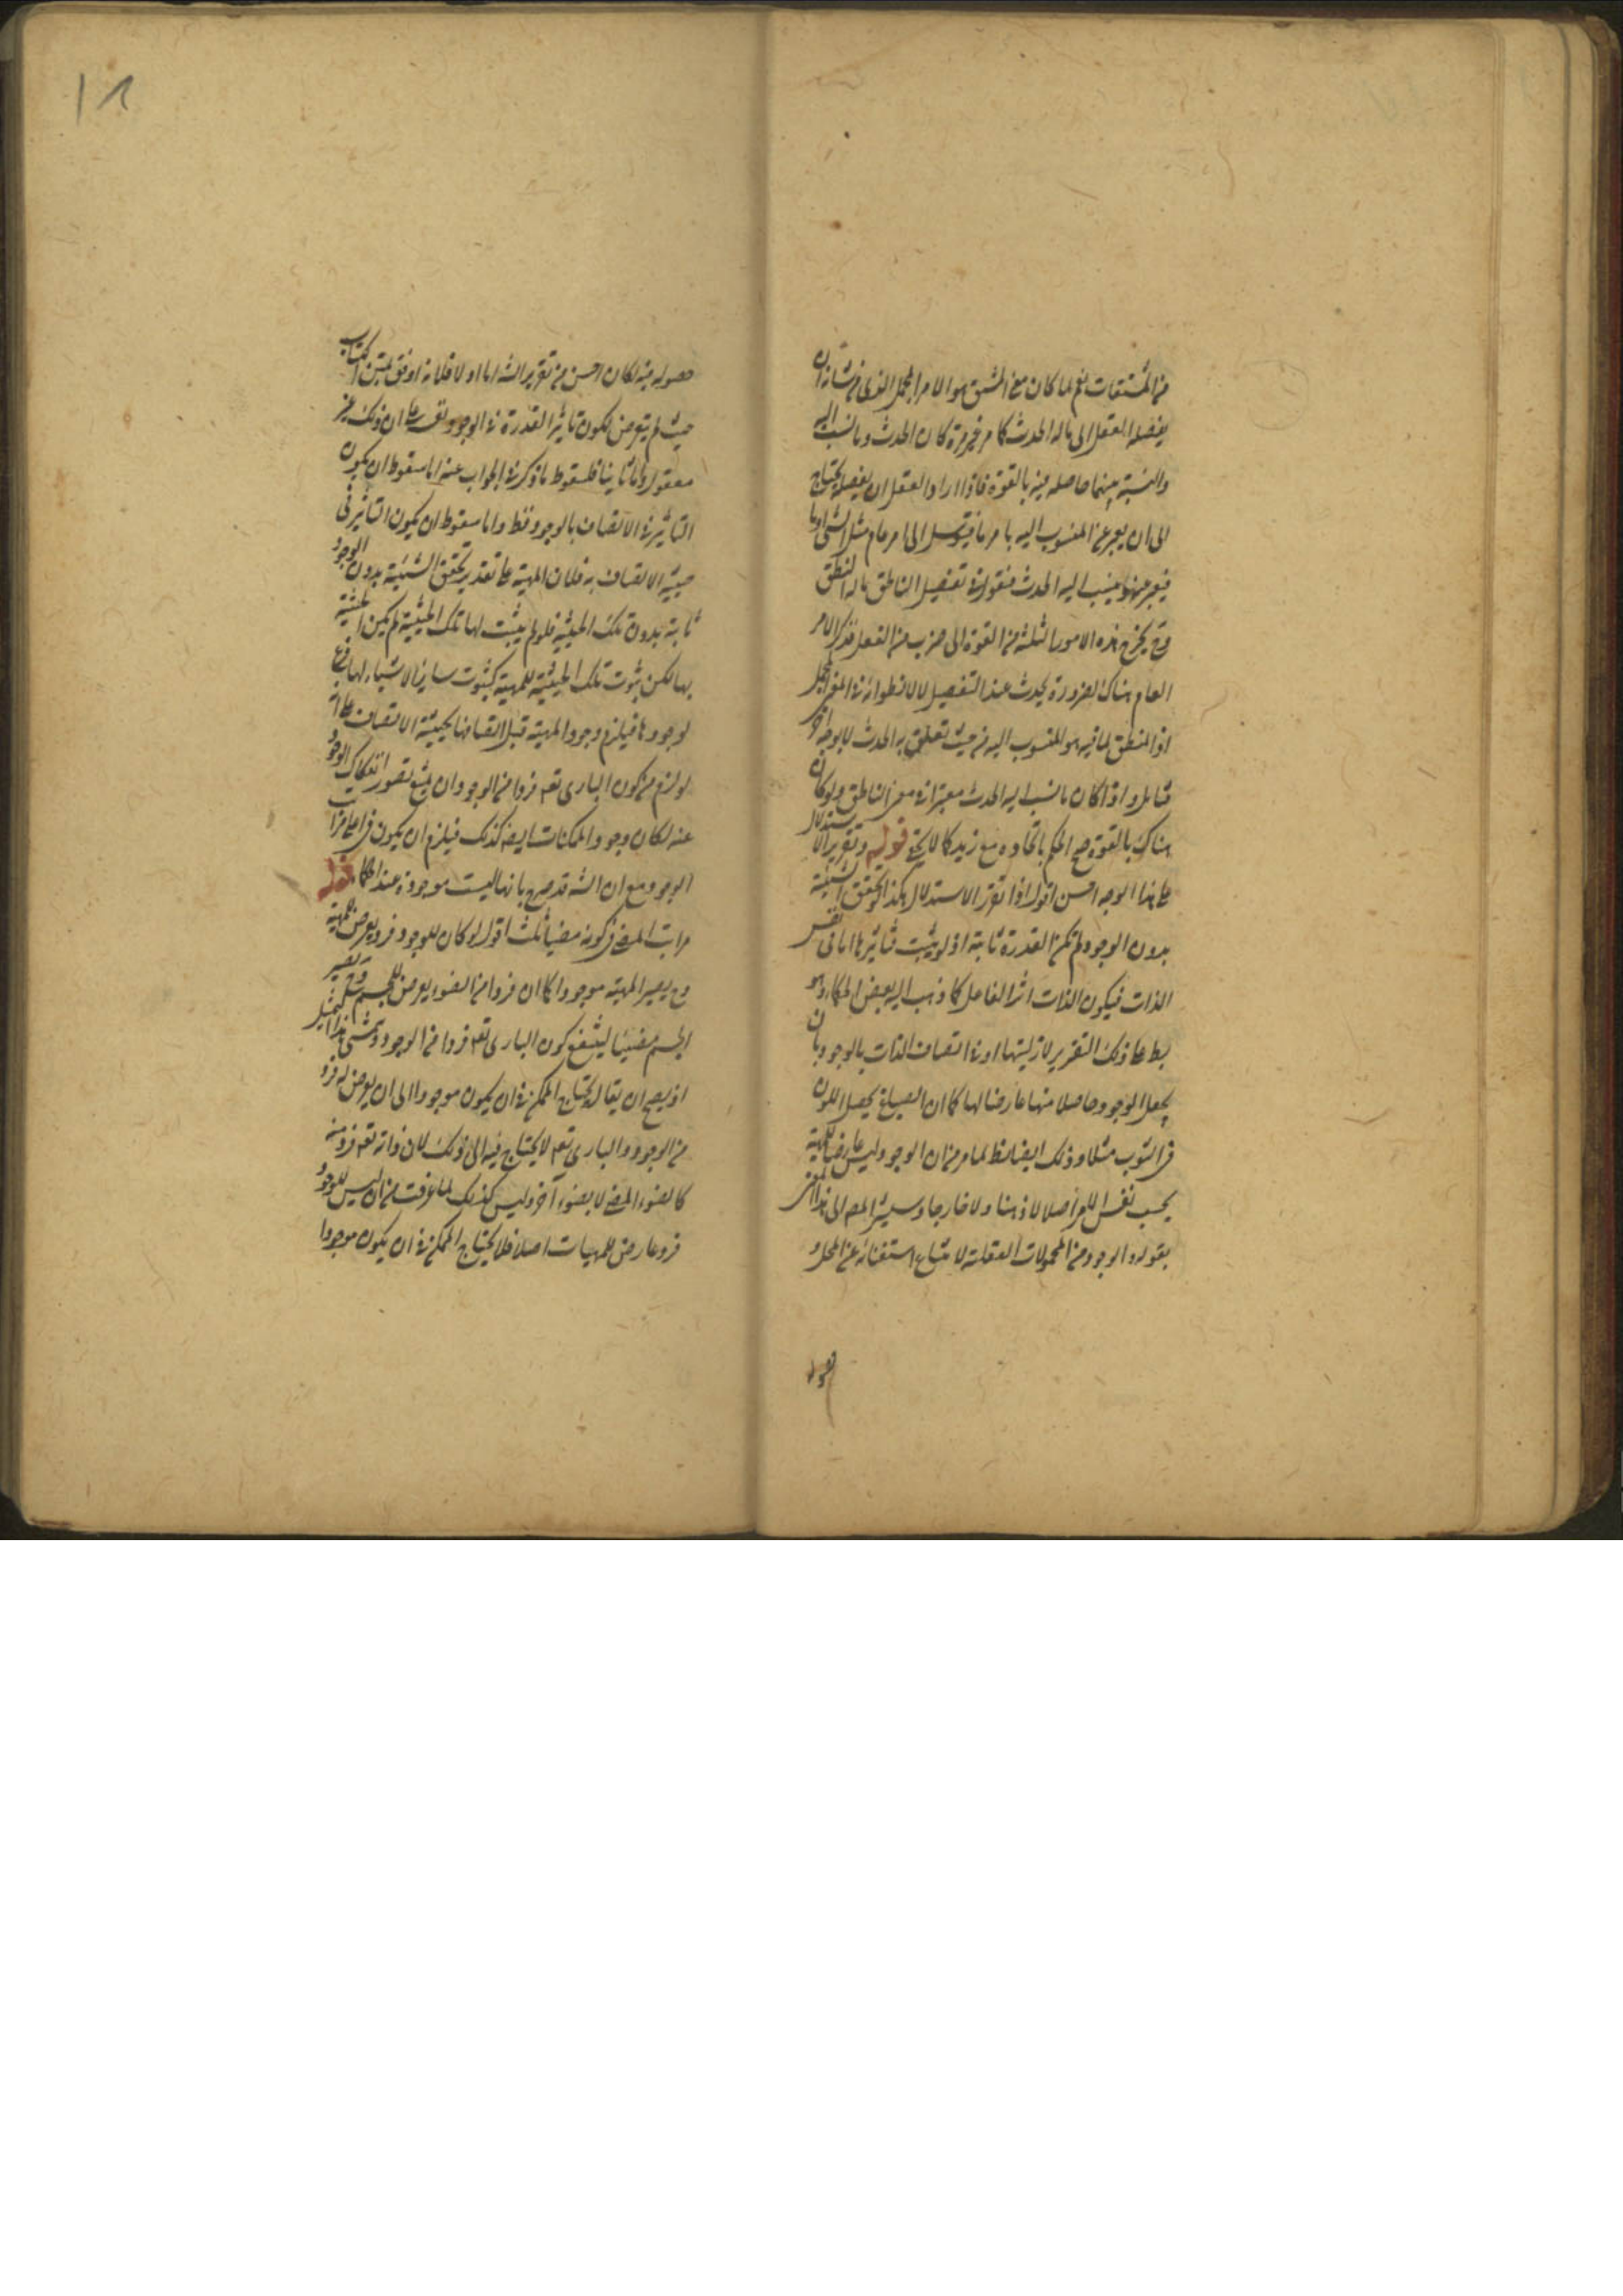 من المشتقات نعم لما كان معنى المشتق هو الامر المجمل الذى من شانه ان
يفصله العقل الى ماله الحدث كما مر غير مرة كان الحدث وما نسب اليه
والنسبة بينهما حاصله فيه بالقوة فاذا اراد العقل ان يفصله يحتاج
الى ان يعبر عن المنسوب اليه بامر ما فيتوسل الى امر عام مثل الشئ او ما
فيعبر عنهما ينسب اليه الحدث فنقول فى تفصيل الناطق ماله النطق
وح يخرج هذه الامور الثلثة من القوة الى ضرب من الفعل فذكر الامر
العام هناك لضرورة يحدث عند التفصيل لا لانطوائه فى المعنى المجمل
اذ المنطق لما فيه هو المنسوب اليه من حيث تعلق به الحدث لا بوجه آخر
فتامل واذا كان ما نسب اليه الحدث معتبرا فى معنى الناطق ولو كان
هناك بالقوة صح الحكم باتحاده مع زيد كما لا يخفى قوله وتقرير الاستدلال
على هذا الوجه احسن اقول اذا تقرر الاستدلال هكذا لو تحقق الشيئية
بدون الوجود لم تكن القدرة ثابتة اذ لو ثبت فتاثيرها اما فى نفس
الذات فيكون الذات اثر الفاعل كما ذهب اليه بعض الحكماء وهو
بط على ذلك التقرير لازليتها او فى اتصاف الذات بالوجود بان
يجعل الوجود حاصلا منها عارضا لها كما ان الصباغ يحصل اللون
فى الثوب مثلا وذلك ايضا بط لما مر من ان الوجود ليس عارضا للمهية
بحسب نفس الامر اصلا لا ذهنا ولا خارجا وسيشير المص الى هذا المعنى
بقوله والوجود من المحمولات العقلية لامتناع استغنائه عن المحل و
حصوله فيه لكان احسن من تقرير الشه اما اولا فلانه اوفق بمتن الكتاب
حيث لم يتعرض لكون تاثير القدرة فى الوجود نفسه على ان ذلك غير
معقول واما ثانيا فلسقوط ما ذكر فى الجواب عنه اما سقوط ان يكون
التاثير فى الاتصاف بالوجود فقط واما سقوط ان يكون التاثير فى
حيثية الاتصاف به فلان المهية على تقدير تحقق الشيئية بدون الوجود
ثابتة بدون تلك الحيثية فلو لم يثبت لها تلك الحيثية لم يكن الحيثية
بها لكن ثبوت تلك الحيثية للمهية كثبوت ساير الاشياء لها فرع
لوجودها فيلزم وجود المهية قبل اتصافها بحيثية الاتصاف على انه
لو لزم من كون البارى تع فردا من الوجود ان يمتنع تصور انفكاك الوجود
عنه لكان وجود الممكنات ايضا كذلك فيلزم ان يكون فى اعلى مراتب
الوجود مع ان الشه قد صرح بانها ليست موجودة عند الحكماء قوله
مراتب المضئ فى كونه مضيئا ثلث اقول لو كان للوجود فرد يعرض للمهية
وح يصير المهية موجودا كما ان فردا من الضوء يعرض للجسم وح يصير
الجسم مضيئا ليتفرع كون البارى تع فردا من الوجود ويتمشى هذا التمثيل
اذ يصح ان يقال يحتاج الممكن فى ان يكون موجودا الى ان يعرض له فرد
من الوجود والبارى تع لا يحتاج فيه الى ذلك لان ذاته تع فرد منه
كالضوء المضئ لا بضوء آخر وليس كذلك لما عرفت من ان ليس للوجود
فرد عارض للمهيات اصلا فلا يحتاج الممكن فى ان يكون موجودا